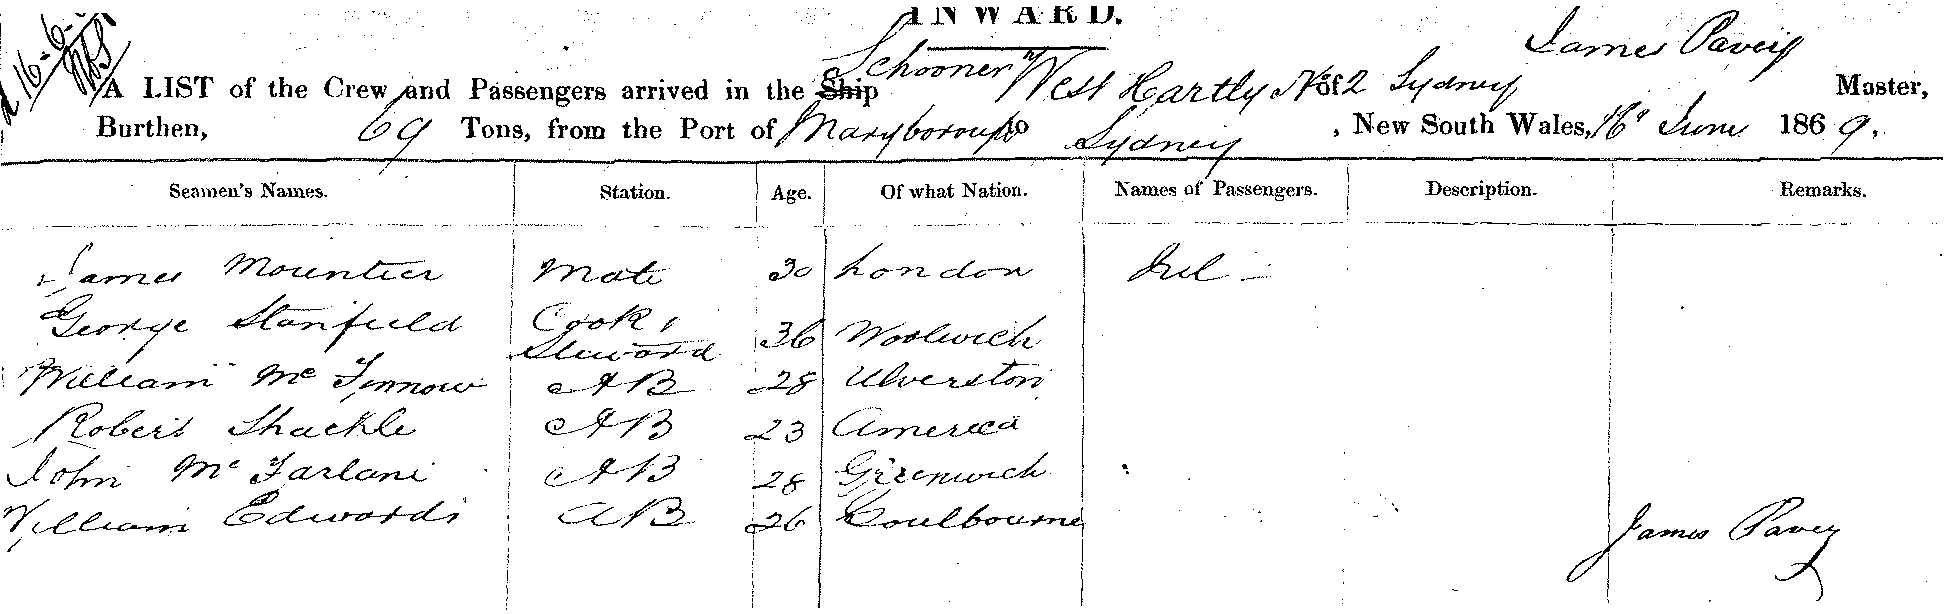 INWARD.
16-6-
A LIST of the Crew and Passengers arrived in the Ship Schooner West Hartly No 2 of Sydney James Pavey Master,
Burthen, 69 Tons, from the Port of Maryborough to Sydney, New South Wales, 16 June 1869.
Seamen's Names. Station. Age. Of what Nation. Names of Passengers. Description. Remarks.
James Mountier Mate 30 London Nil -
George Stanfield Cook, Steward 36 Woolwich
William Mc AB 28 Ulverston
Robert Shackle AB 23 America
John McFarlane AB 28 Greenwich
William Edwards AB 26 Coulbourne
James Pavey